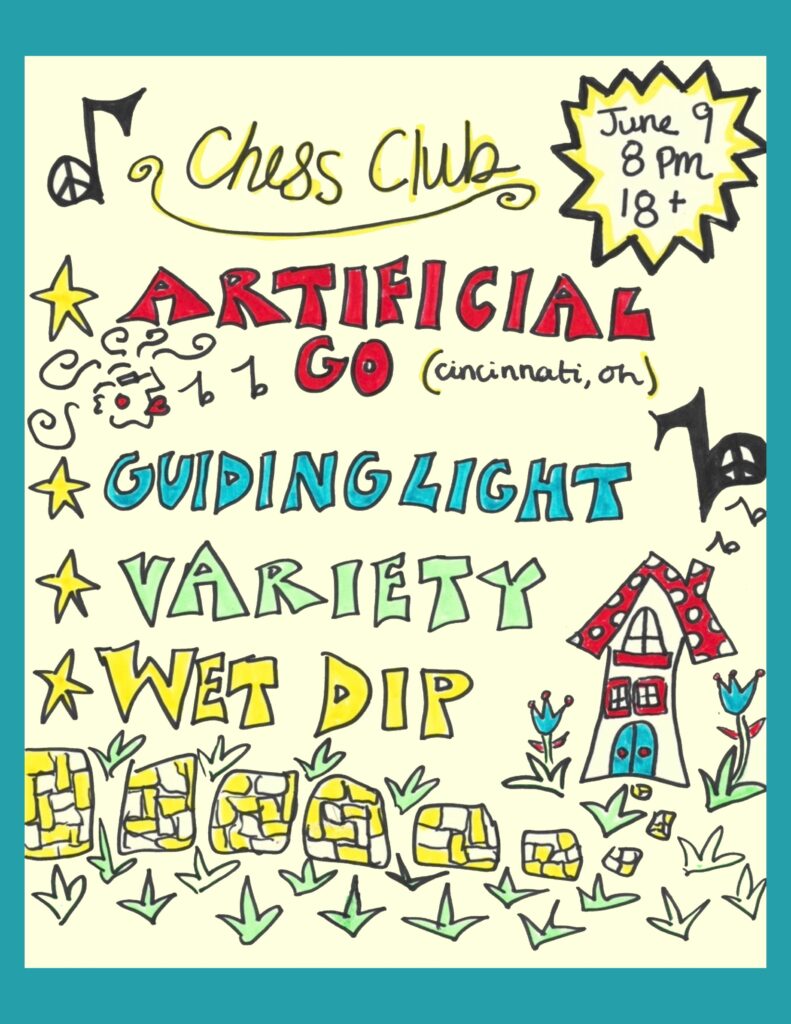 Chess Club
June 9
8 pm
18+
ARTIFICIAL
GO (cincinnati, oh)
GUIDING LIGHT
VARIETY
WET DIP